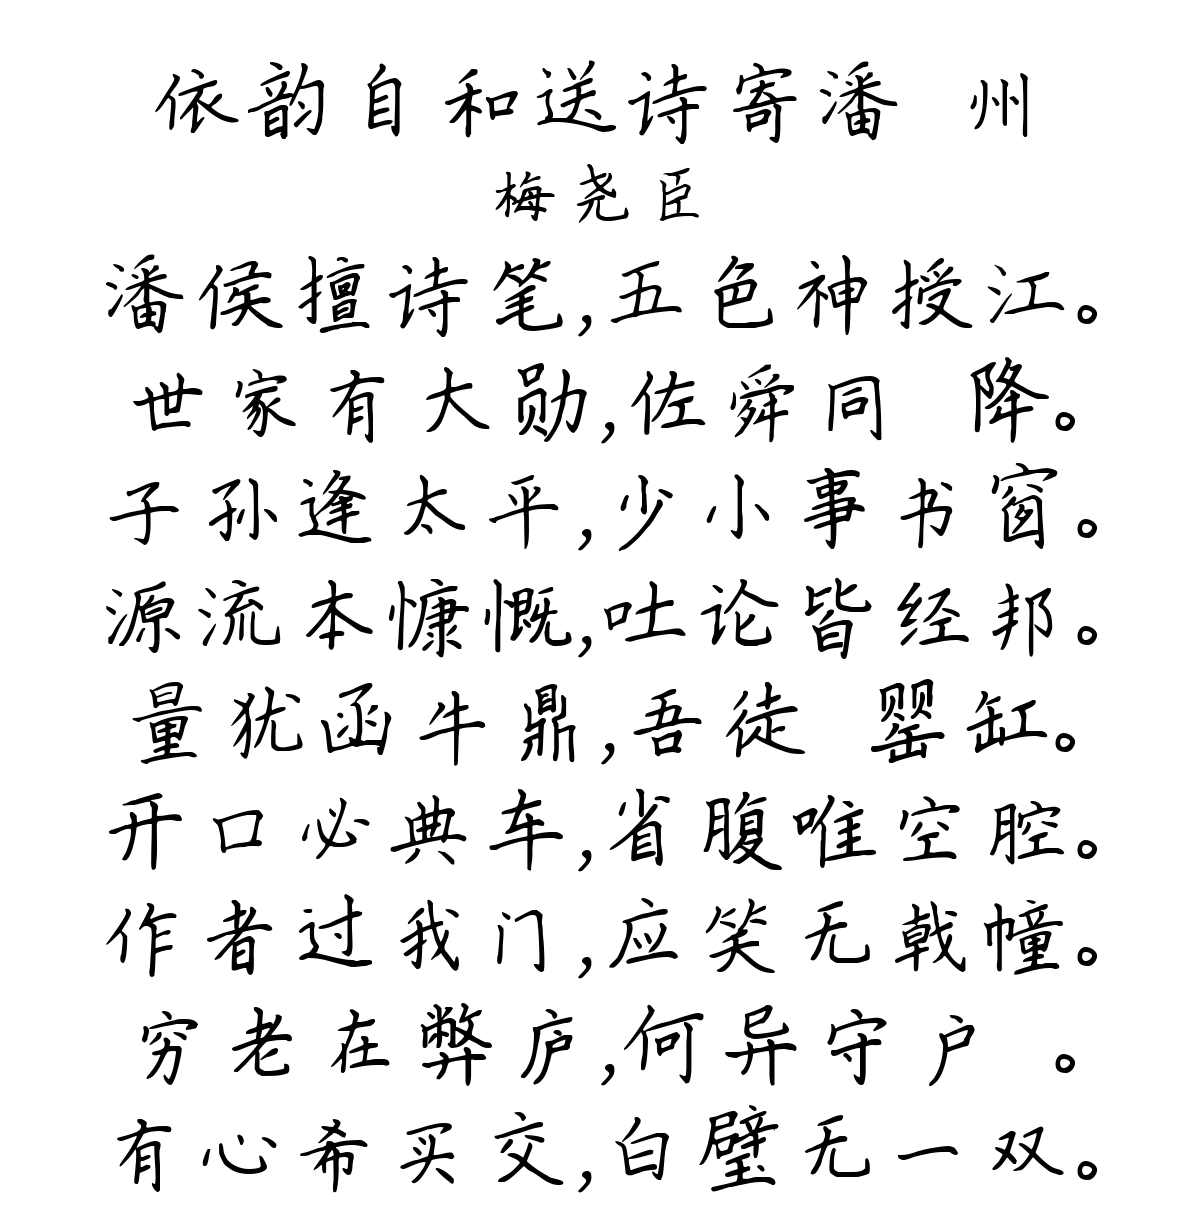 依韵自和送诗寄潘 州
梅尧臣
潘侯擅诗笔,五色神授江。
世家有大勋,佐舜同 降。
子孙逢太平,少小事书窗。
源流本慷慨,吐论皆经邦。
量犹函牛鼎,吾徒 罂缸。
开口必典车,省腹唯空腔。
作者过我门,应笑无戟幢。
穷老在弊庐,何异守户 。
有心希买交,白璧无一双。